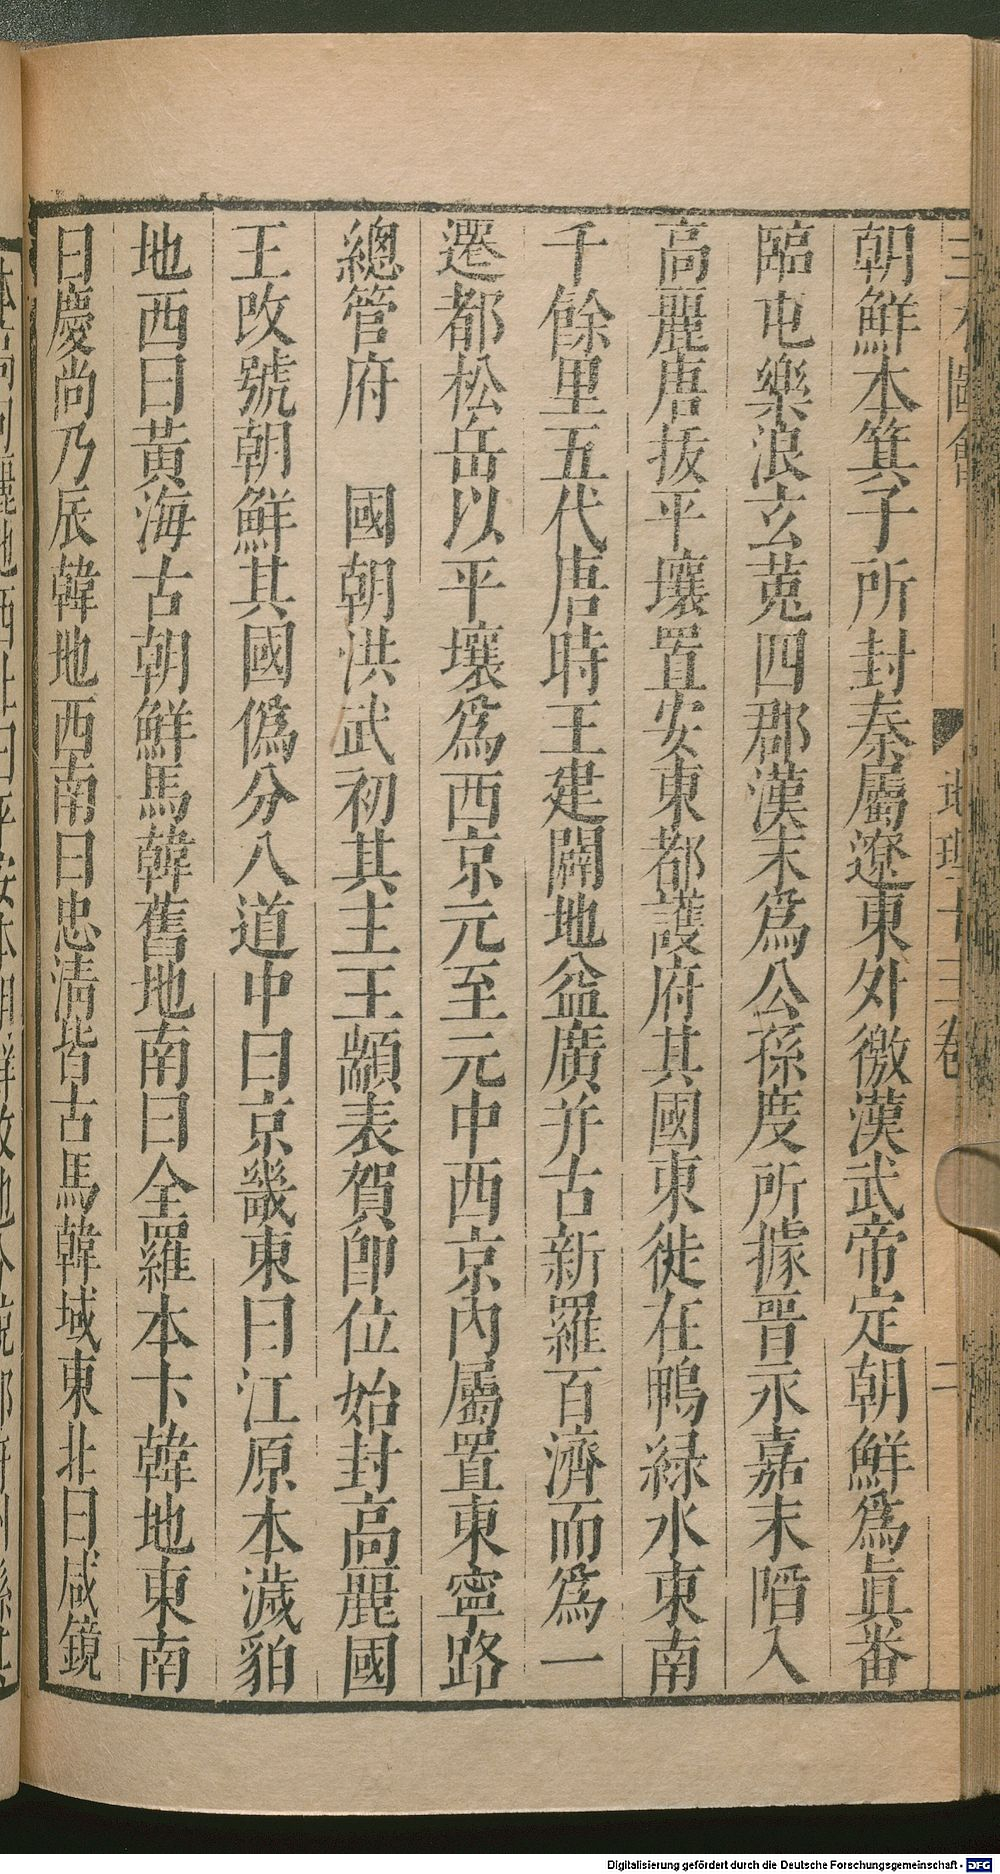 三才圖會
地理十三卷
二
朝鮮本箕子所封秦屬遼東外徼漢武帝定朝鮮爲眞番
臨屯樂浪玄菟四郡漢末爲公孫度所據晉永嘉末陷入
高麗唐拔平壤置安東都護府其國東徙在鴨緑水東南
千餘里五代唐時王建闢地益廣并古新羅百濟而爲一
遷都松岳以平壤爲西京元至元中西京内屬置東寧路
總管府 國朝洪武初其主王顓表賀卽位始封高麗國
王改號朝鮮其國僞分八道中曰京畿東曰江原本濊貊
地西曰黃海古朝鮮馬韓舊地南曰全羅本卞韓地東南
曰慶尚乃辰韓地西南曰忠清皆古馬韓域東北曰咸鏡
Digitalisierung gefördert durch die Deutsche Forschungsgemeinschaft - DFG